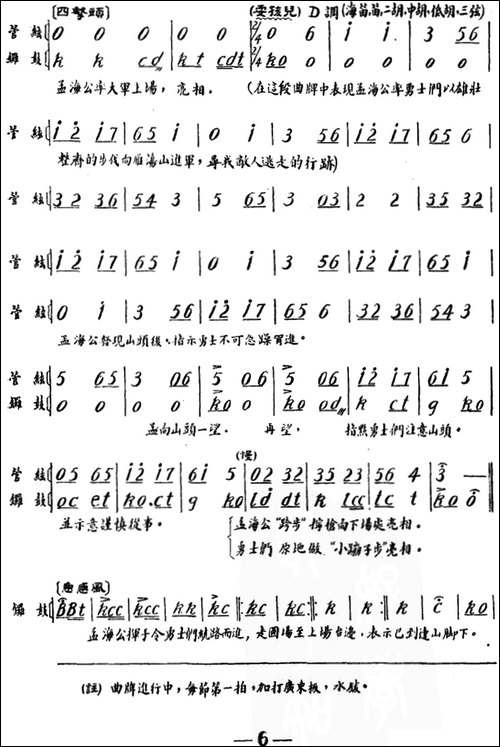 〔四擊頭〕 (耍孩兒) D調(海笛、笛、二胡、中胡、低胡、三弦)
管絃 0 0 0 0 0 0 2/4 0 6 | i i | 3 56 |
鑼鼓 k k cd k t cdt 2/4 ko 0 0 0 0 0
孟海公率大軍上場，亮相。 (在這段曲牌中表現孟海公率勇士們以雄壯
管絃 i2 i7 | 65 i | 0 i | 3 56 | i2 i7 | 65 6 |
整齊的步伐向雁蕩山進軍，尋找敵人逃走的行跡)
管絃 32 36 | 54 3 | 5 65 | 3 03 | 2 2 | 35 32 |
管絃 i2 i7 | 65 i | 0 i | 3 56 | i2 i7 | 65 i |
管絃 0 i | 3 56 | i2 i7 | 65 6 | 32 36 | 54 3 |
孟海公發現山頭後，指示勇士不可急躁冒進。
管絃 5 65 | 3 06 | 5 06 | 5 06 | i2 i7 | 6i 5 |
鑼鼓 0 0 | 0 0 | ko 0 | ko od | k ct | g ko |
孟向山頭一望。 再望， 指點勇士們注意山頭。
(慢)
管絃 05 65 | i2 i7 | 6i 5 | 02 32 | 35 23 | 56 4 | 3 — ‖
鑼鼓 oc et | ko.ct | g ko | ld dt | k lcc | lc t | ko o ‖
並示意謹慎從事。 孟海公“跨步”擰槍向下場處亮相。
勇士們原地做“小蹦子步”亮相。
〔急急風〕
鑼鼓 BBt | kcc | kcc | kk | kc ‖: kc | kc :‖: k | k :‖ k | c | ko |
孟海公揮手令勇士們繞路而進，走圓場至上場台邊，表示已到達山脚下。
(註) 曲牌進行中，每節第一拍，加打廣東板，水鈸。
— 6 —